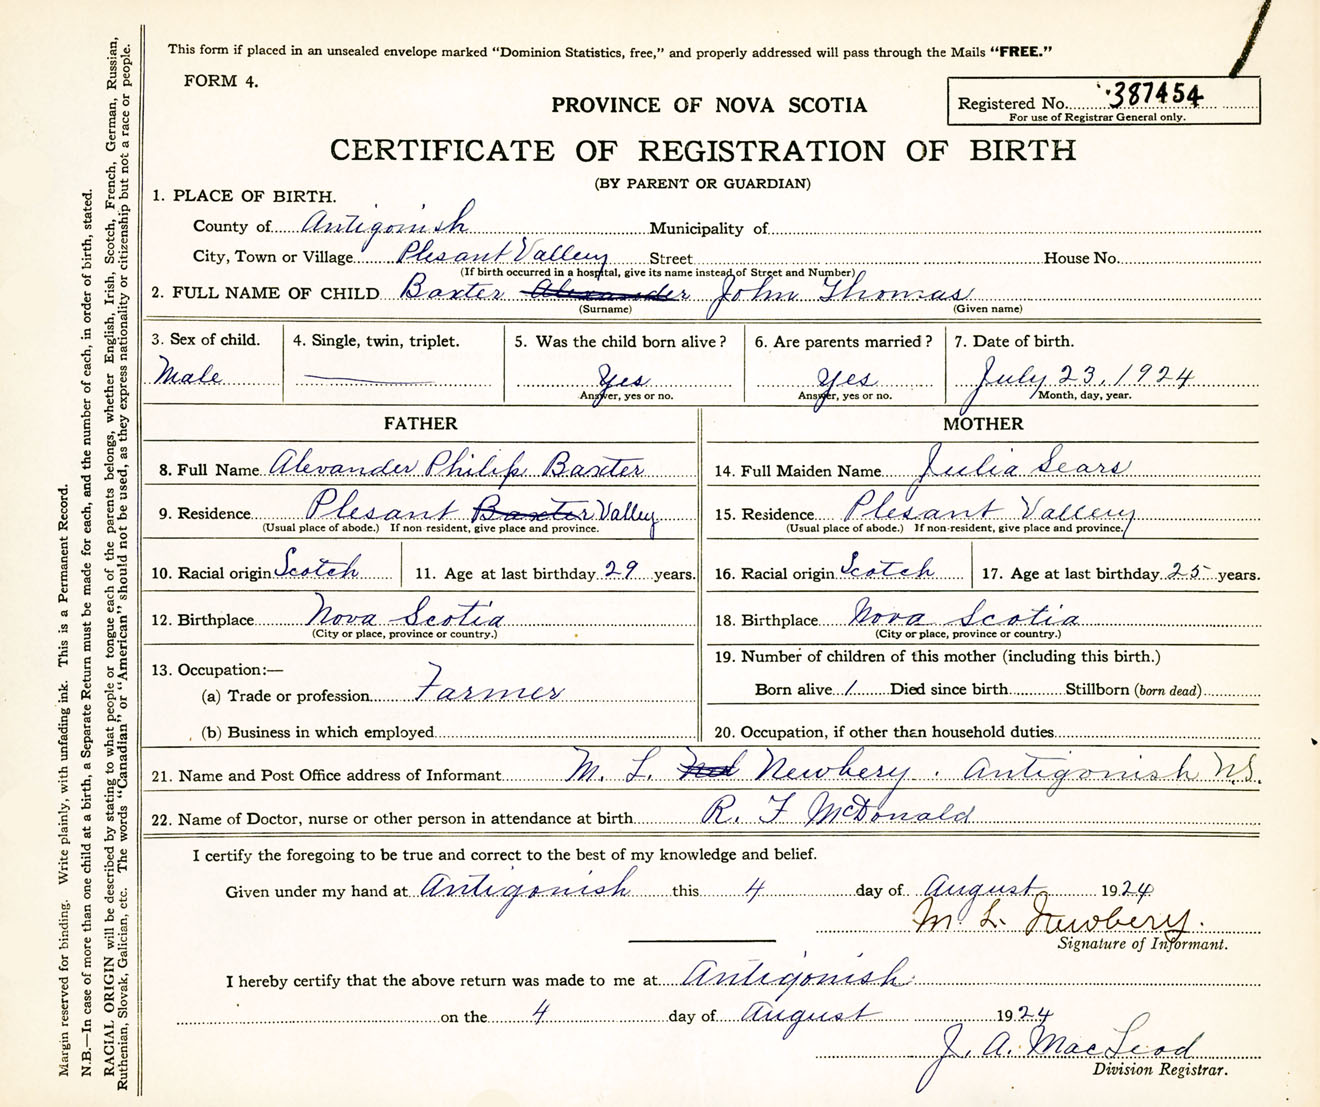 This form if placed in an unsealed envelope marked “Dominion Statistics, free,” and properly addressed will pass through the Mails “FREE.”
FORM 4.
PROVINCE OF NOVA SCOTIA
Registered No. 387454
For use of Registrar General only.
CERTIFICATE OF REGISTRATION OF BIRTH
(BY PARENT OR GUARDIAN)
1. PLACE OF BIRTH.
County of Antigonish Municipality of
City, Town or Village Plesant Valley Street House No.
(If birth occurred in a hospital, give its name instead of Street and Number)
2. FULL NAME OF CHILD Baxter Alexander John Thomas
(Surname) (Given name)
3. Sex of child. 4. Single, twin, triplet. 5. Was the child born alive? 6. Are parents married? 7. Date of birth.
Male Yes Yes July 23, 1924
Answer, yes or no. Answer, yes or no. Month, day, year.
FATHER MOTHER
8. Full Name Alexander Philip Baxter 14. Full Maiden Name Julia Sears
9. Residence Plesant Baxter Valley 15. Residence Plesant Valley
(Usual place of abode.) If non resident, give place and province. (Usual place of abode.) If non-resident, give place and province.
10. Racial origin Scotch 11. Age at last birthday 29 years. 16. Racial origin Scotch 17. Age at last birthday 25 years.
12. Birthplace Nova Scotia 18. Birthplace Nova Scotia
(City or place, province or country.) (City or place, province or country.)
13. Occupation:— 19. Number of children of this mother (including this birth.)
(a) Trade or profession Farmer Born alive 1 Died since birth Stillborn (born dead)
(b) Business in which employed 20. Occupation, if other than household duties
21. Name and Post Office address of Informant M. L. Newbery. Antigonish N.S.
22. Name of Doctor, nurse or other person in attendance at birth R. F McDonald
I certify the foregoing to be true and correct to the best of my knowledge and belief.
Given under my hand at Antigonish this 4 day of August 1924
M. L. Newbery.
Signature of Informant.
I hereby certify that the above return was made to me at Antigonish
on the 4 day of August 1924
J. A. MacLeod
Division Registrar.
Margin reserved for binding. Write plainly, with unfading ink. This is a Permanent Record.
N.B.—In case of more than one child at a birth, a Separate Return must be made for each, and the number of each, in order of birth, stated.
RACIAL ORIGIN will be described by stating to what people or tongue each of the parents belongs, whether English, Irish, Scotch, French, German, Russian,
Ruthenian, Slovak, Galician, etc. The words “Canadian” or “American” should not be used, as they express nationality or citizenship but not a race or people.